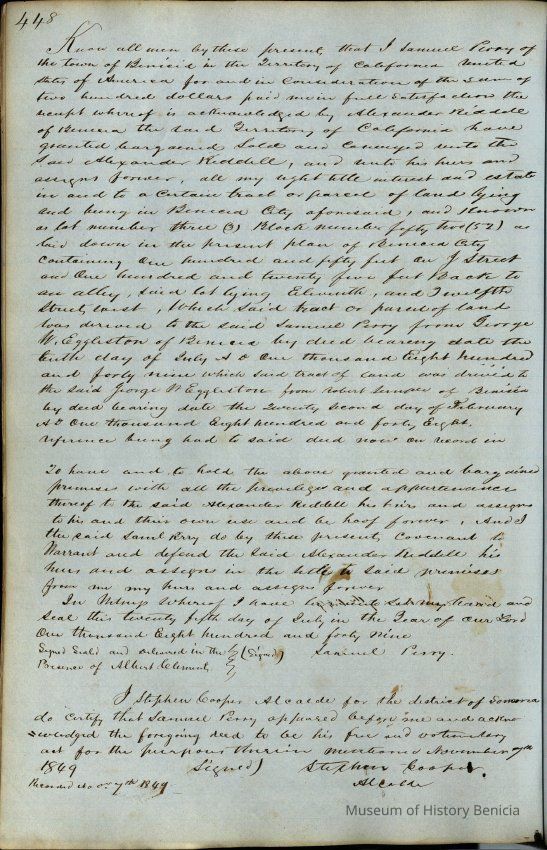 448
Know all men by these present, that I Samuel Perry of
the town of Benicia in the Territory of California United
States of America for and in Consideration of the Sum of
two hundred dollars paid me in full satisfaction the
receipt whereof is acknowledged by Alexander Riddell
of Benicia the said Territory of California have
granted bargained Sold and Conveyed unto the
Said Alexander Riddell, and unto his heirs and
assigns forever, all my right title interest and estate
in and to a certain tract or parcel of land lying
and being in Benicia City aforesaid, and Known
as lot number three (3) Block number fifty two (52) as
laid down in the present plan of Benicia City
Containing One hundred and fifty feet on J Street
and One hundred and twenty five feet Back to
an alley, said lot lying Eleventh, and Twelfth
Streets, Which said tract or parcel of land
was derived to the said Samuel Perry from George
W. Eggleston of Benicia by deed bearing date the
day of July A D One thousand Eight hundred
and forty nine which said tract of land was derived to
the said George W Eggleston from Robert Semple of Benicia
by deed bearing date the Twenty Second day of February
AD One thousand Eight hundred and forty Eight.
reference being had to said deed now on record in
To have and to hold the above granted and bargained
premises with all the privileges and appurtenances
thereof to the said Alexander Riddell his heirs and assigns
to his and their own use and be hoof forever, And I
the said Saml Perry do by these presents Covenant to
Warrant and defend the said Alexander Riddell his
heirs and assigns in the title to said premises
from me my heirs and assigns forever
In Witness Whereof I have set my hand and
Seal this twenty fifth day of July in the Year of our Lord
One thousand Eight hundred and forty Nine
Signed Seald and delivered in the (Signed) Samuel Perry.
Presence of Albert Clements
I Stephen Cooper Alcalde for the district of Sonoma
do Certify that Samuel Perry appeared before me and acknow
wledged the foregoing deed to be his free and voluntary
act for the purposes therein mentioned November 7th
1849 Signed) Stephen Cooper.
Recorded Nov 7th 1849 Alcalde
Museum of History Benicia